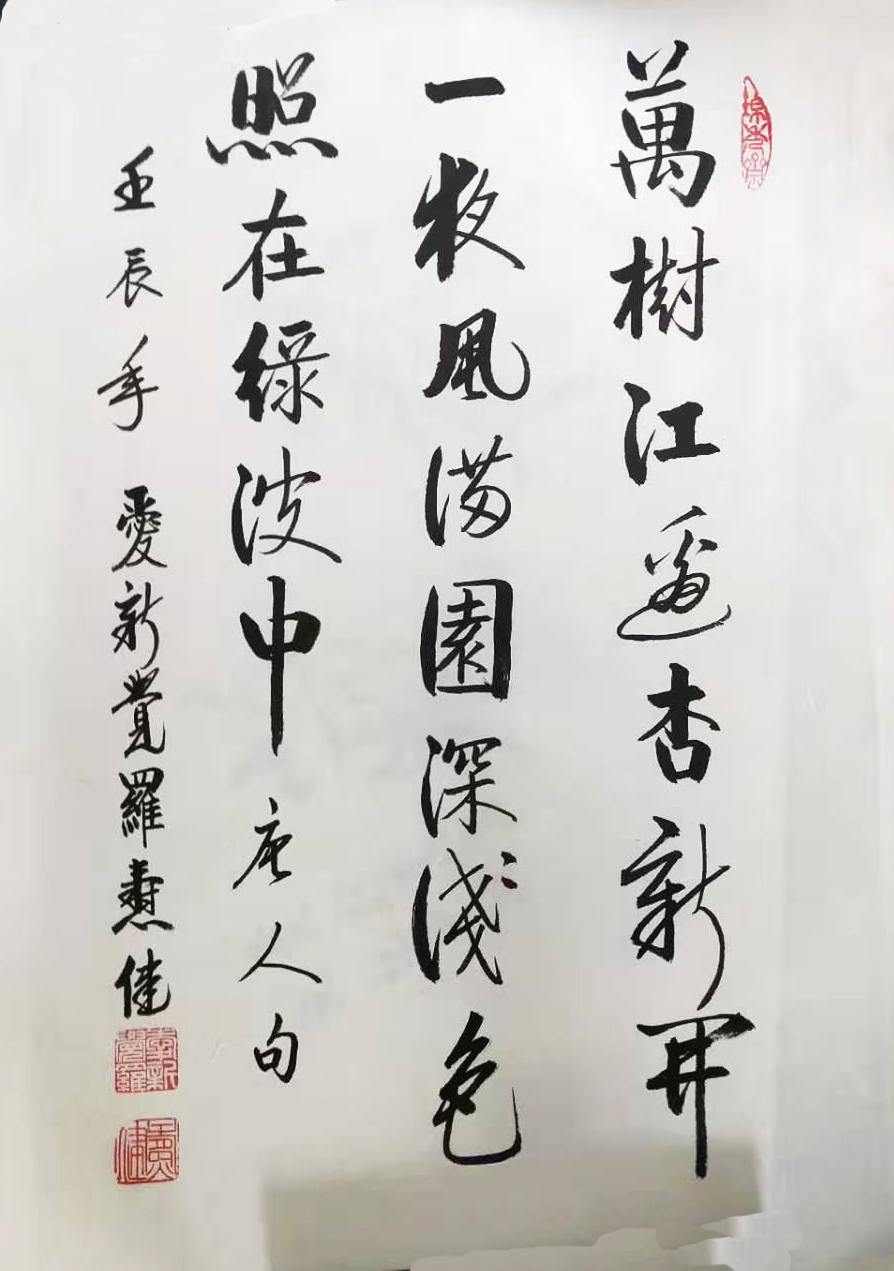 萬樹江邊杏新開
一夜風滿園深淺色
照在綠波中 唐人句
壬辰年 愛新覺羅燾佳
愛新覺羅